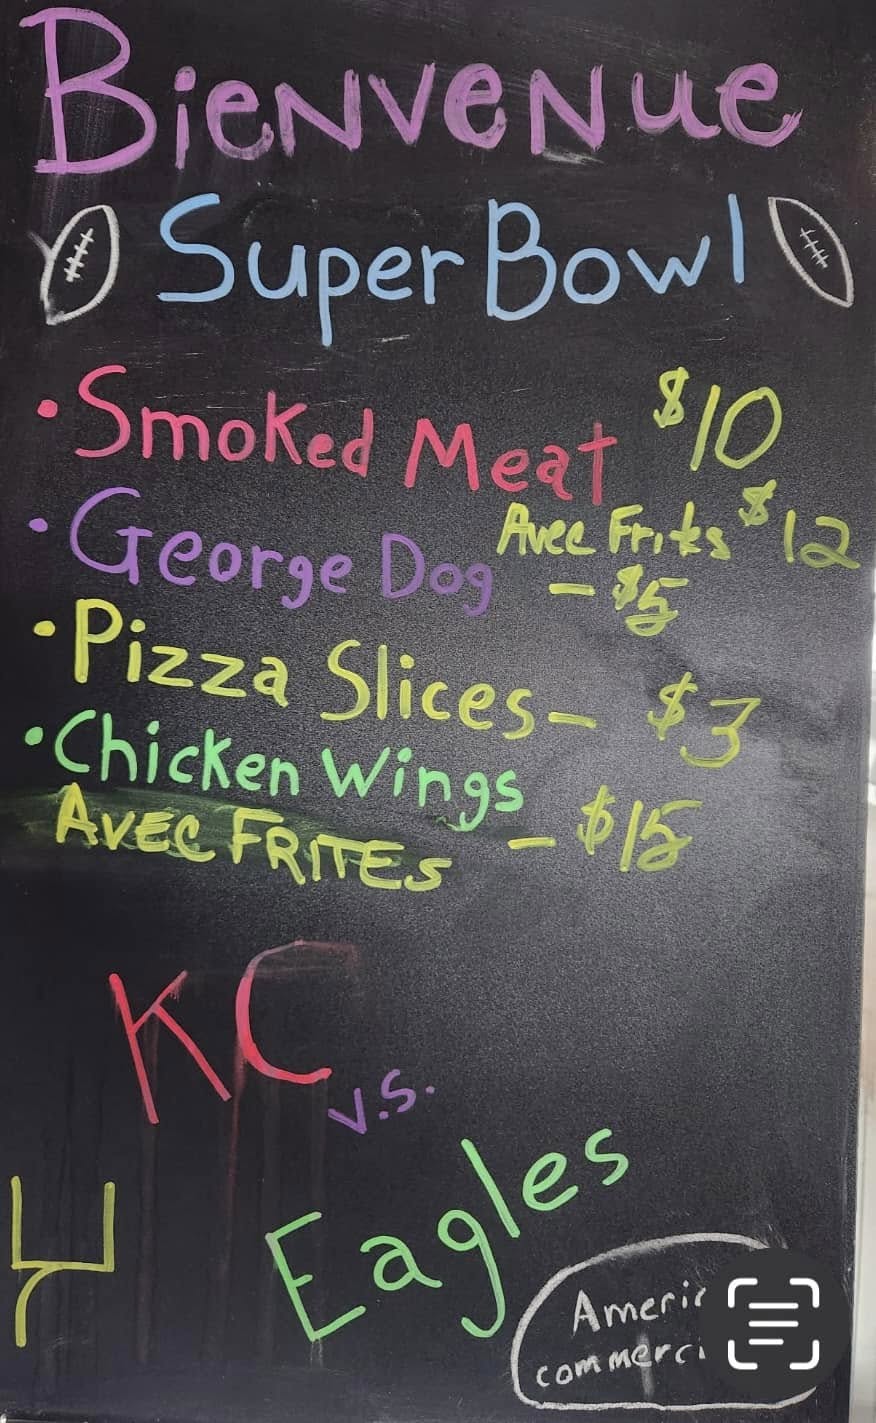 Bienvenue
Super Bowl
• Smoked Meat $10
Avec Frites $12
• George Dog - $5
• Pizza Slices - $3
• Chicken Wings
AVEC FRITES - $15
KC
v.s.
Eagles